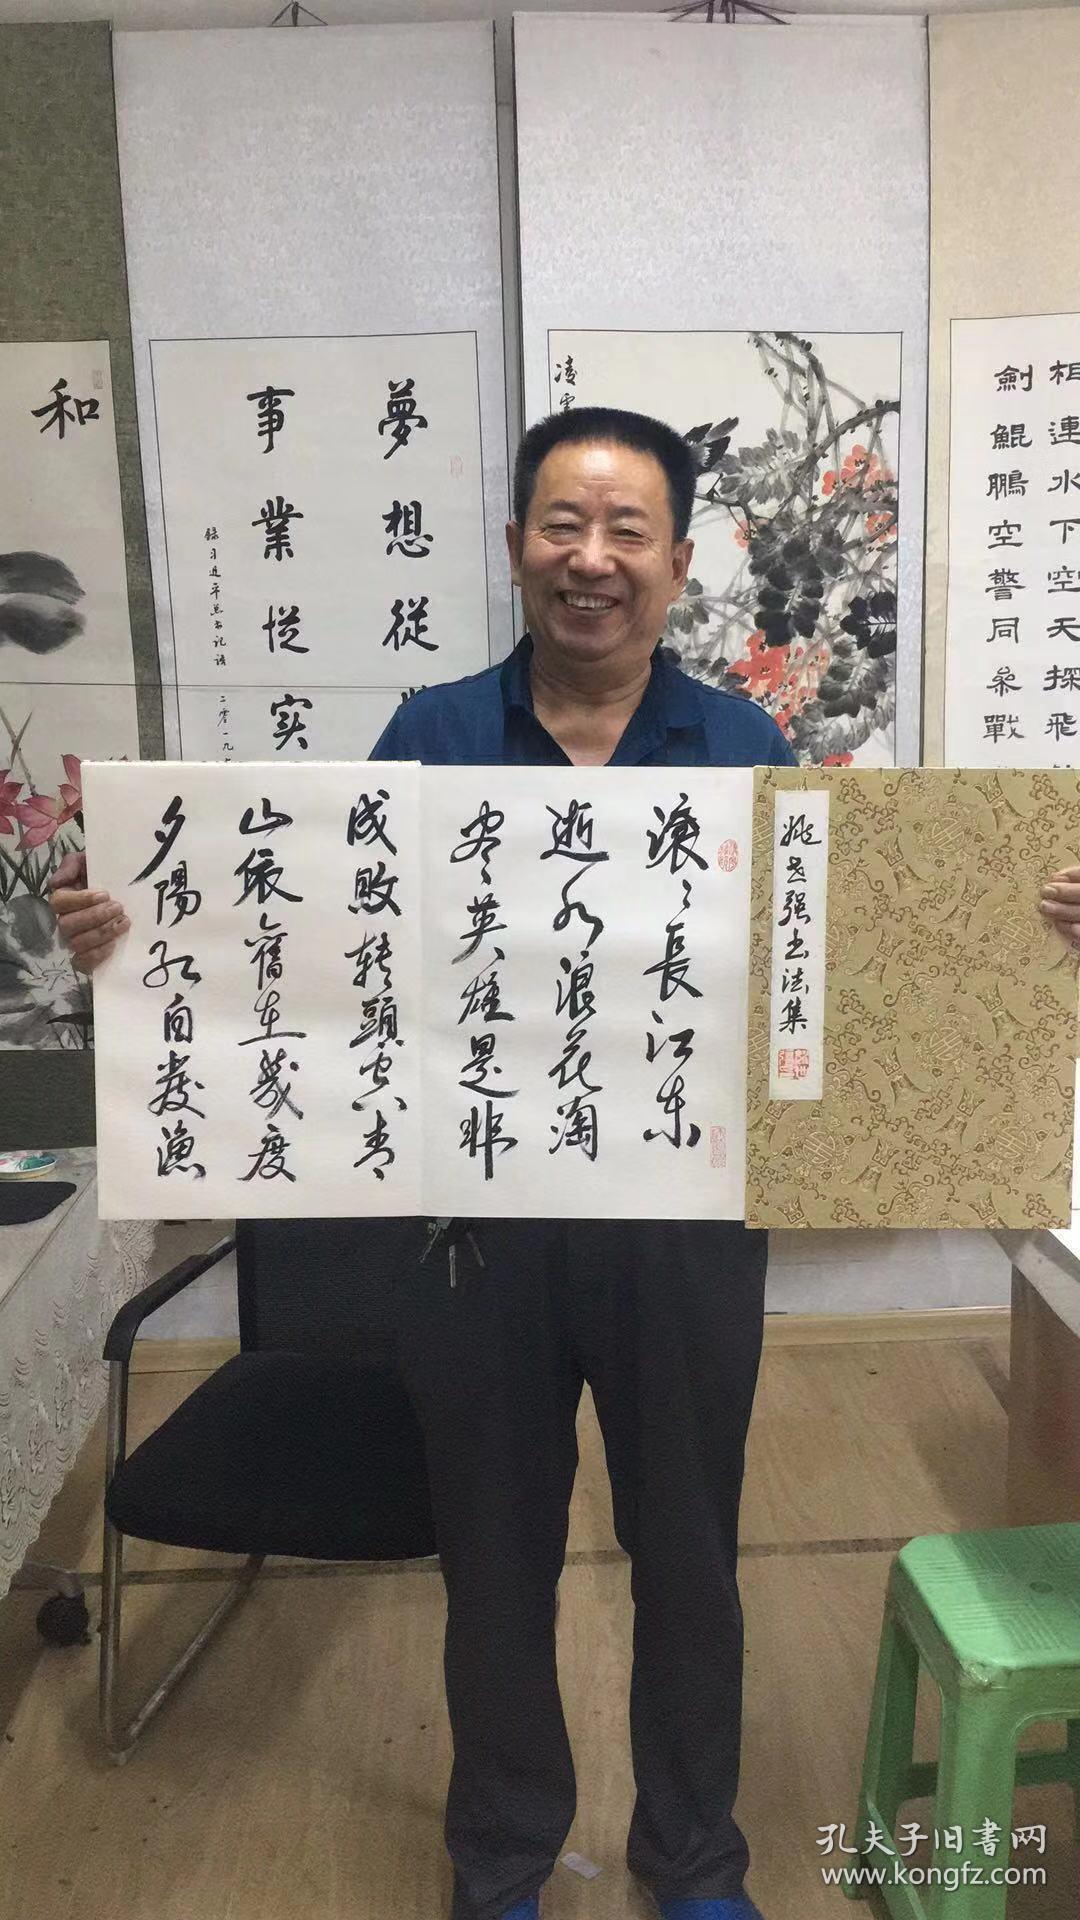 滚〻長江東
逝水浪花淘
尽〻英雄是非
成敗转頭空青〻
山依舊在幾度
夕陽红白发漁
姚世强书法集
夢想從
事業從实
錄习近平总书记语
二零一九
和
凌雲
相連水下空天探飛
劍鯤鵬空警同參戰
孔夫子旧書网
www.kongfz.com